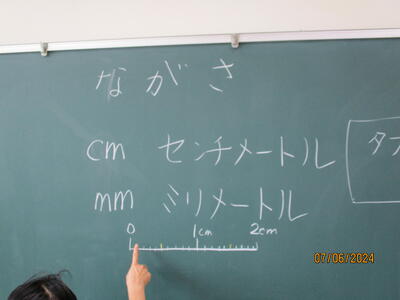 ながさ
cm センチメートル
mm ミリメートル
0 1cm 2cm
07/06/2024